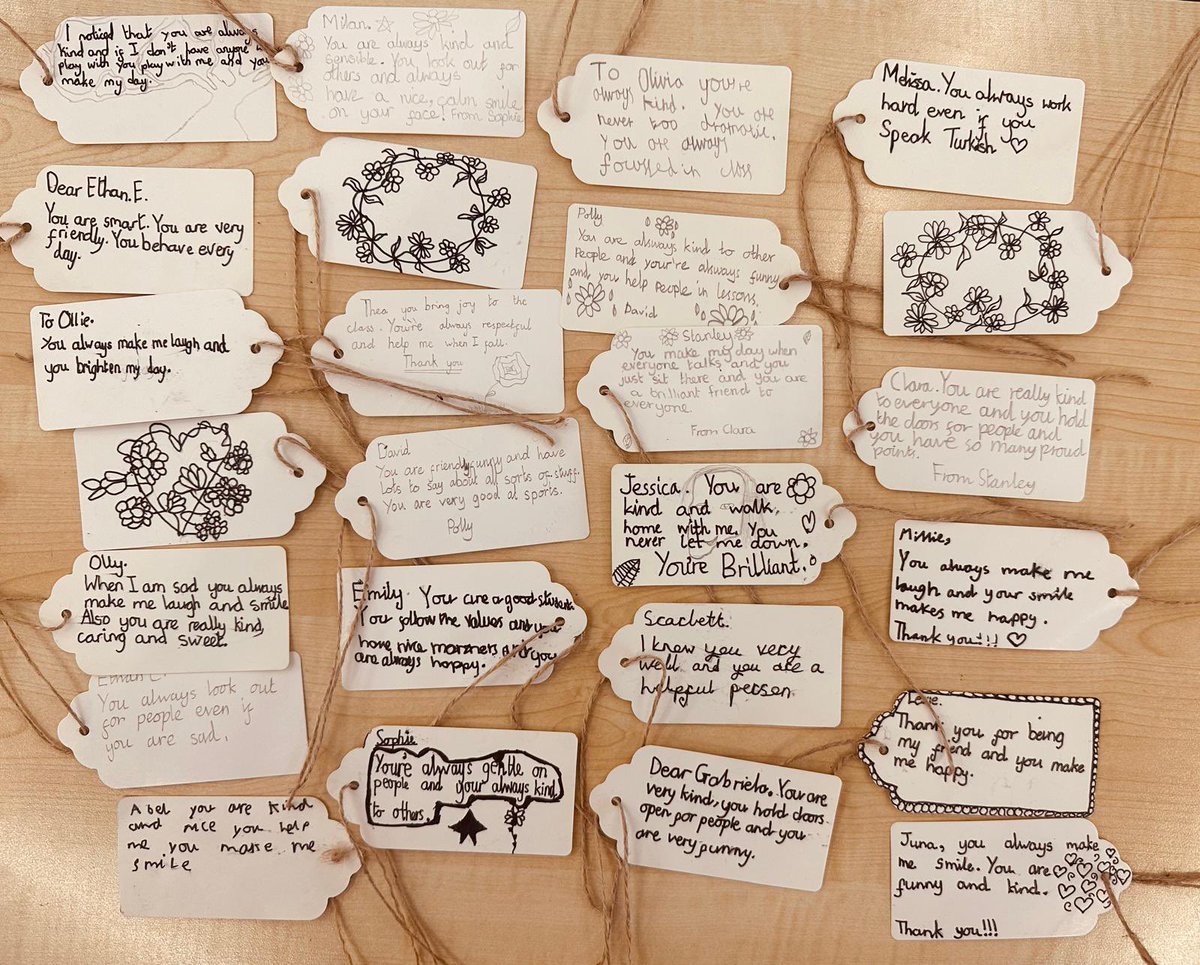 I noticed that you are always
kind and if I don't have anyone to
play with you play with me and you
make my day.
Milan.
You are always kind and
sensible. You look out for
others and always
have a nice, calm smile
on your face! From Sophie
To Olivia you're
always kind. You are
never too dramatic.
You are always
focussed in class
Melissa. You always work
hard even if you
Speak Turkish ♡
Dear Ethan.E.
You are smart. You are very
friendly. You behave every
day.
Polly
You are always kind to other
People and you're always funny
and you help people in lessons.
David
To Ollie.
You always make me laugh and
you brighten my day.
Thea you bring joy to the
class. You're always respectful
and help me when I fall.
Thank you
Stanley
You make my day when
everyone talks and you
just sit there and you are
a brilliant friend to
everyone.
From Clara
Clara. You are really kind
to everyone and you hold
the doors for people and
you have so many proud
points.
From Stanley
David
You are friendly funny and have
lots to say about all sorts of stuff.
You are very good at sports.
Polly
Jessica. You are
kind and walk
home with me. You
never let me down.
You're Brilliant.
Olly.
When I am sad you always
make me laugh and smile
Also you are really kind,
caring and sweet.
Emily. You are a good student
You follow the values and you
have nice manners and you
are always happy.
Millie,
You always make me
laugh and your smile
makes me happy.
Thank you!!! ♡
Scarlett.
I know you very
well and you are a
helpful person.
Ethan
You always look out
for people even if
you are sad.
Thank you for being
my friend and you make
me happy.
Sophie
You're always gentle on
people and your always kind
to others.
Dear Gabriela. You are
very kind, you hold doors
open for people and you
are very funny.
Abel you are kind
and nice you help
me you make me
smile
Juna, you always make
me smile. You are
funny and kind.
Thank you!!!